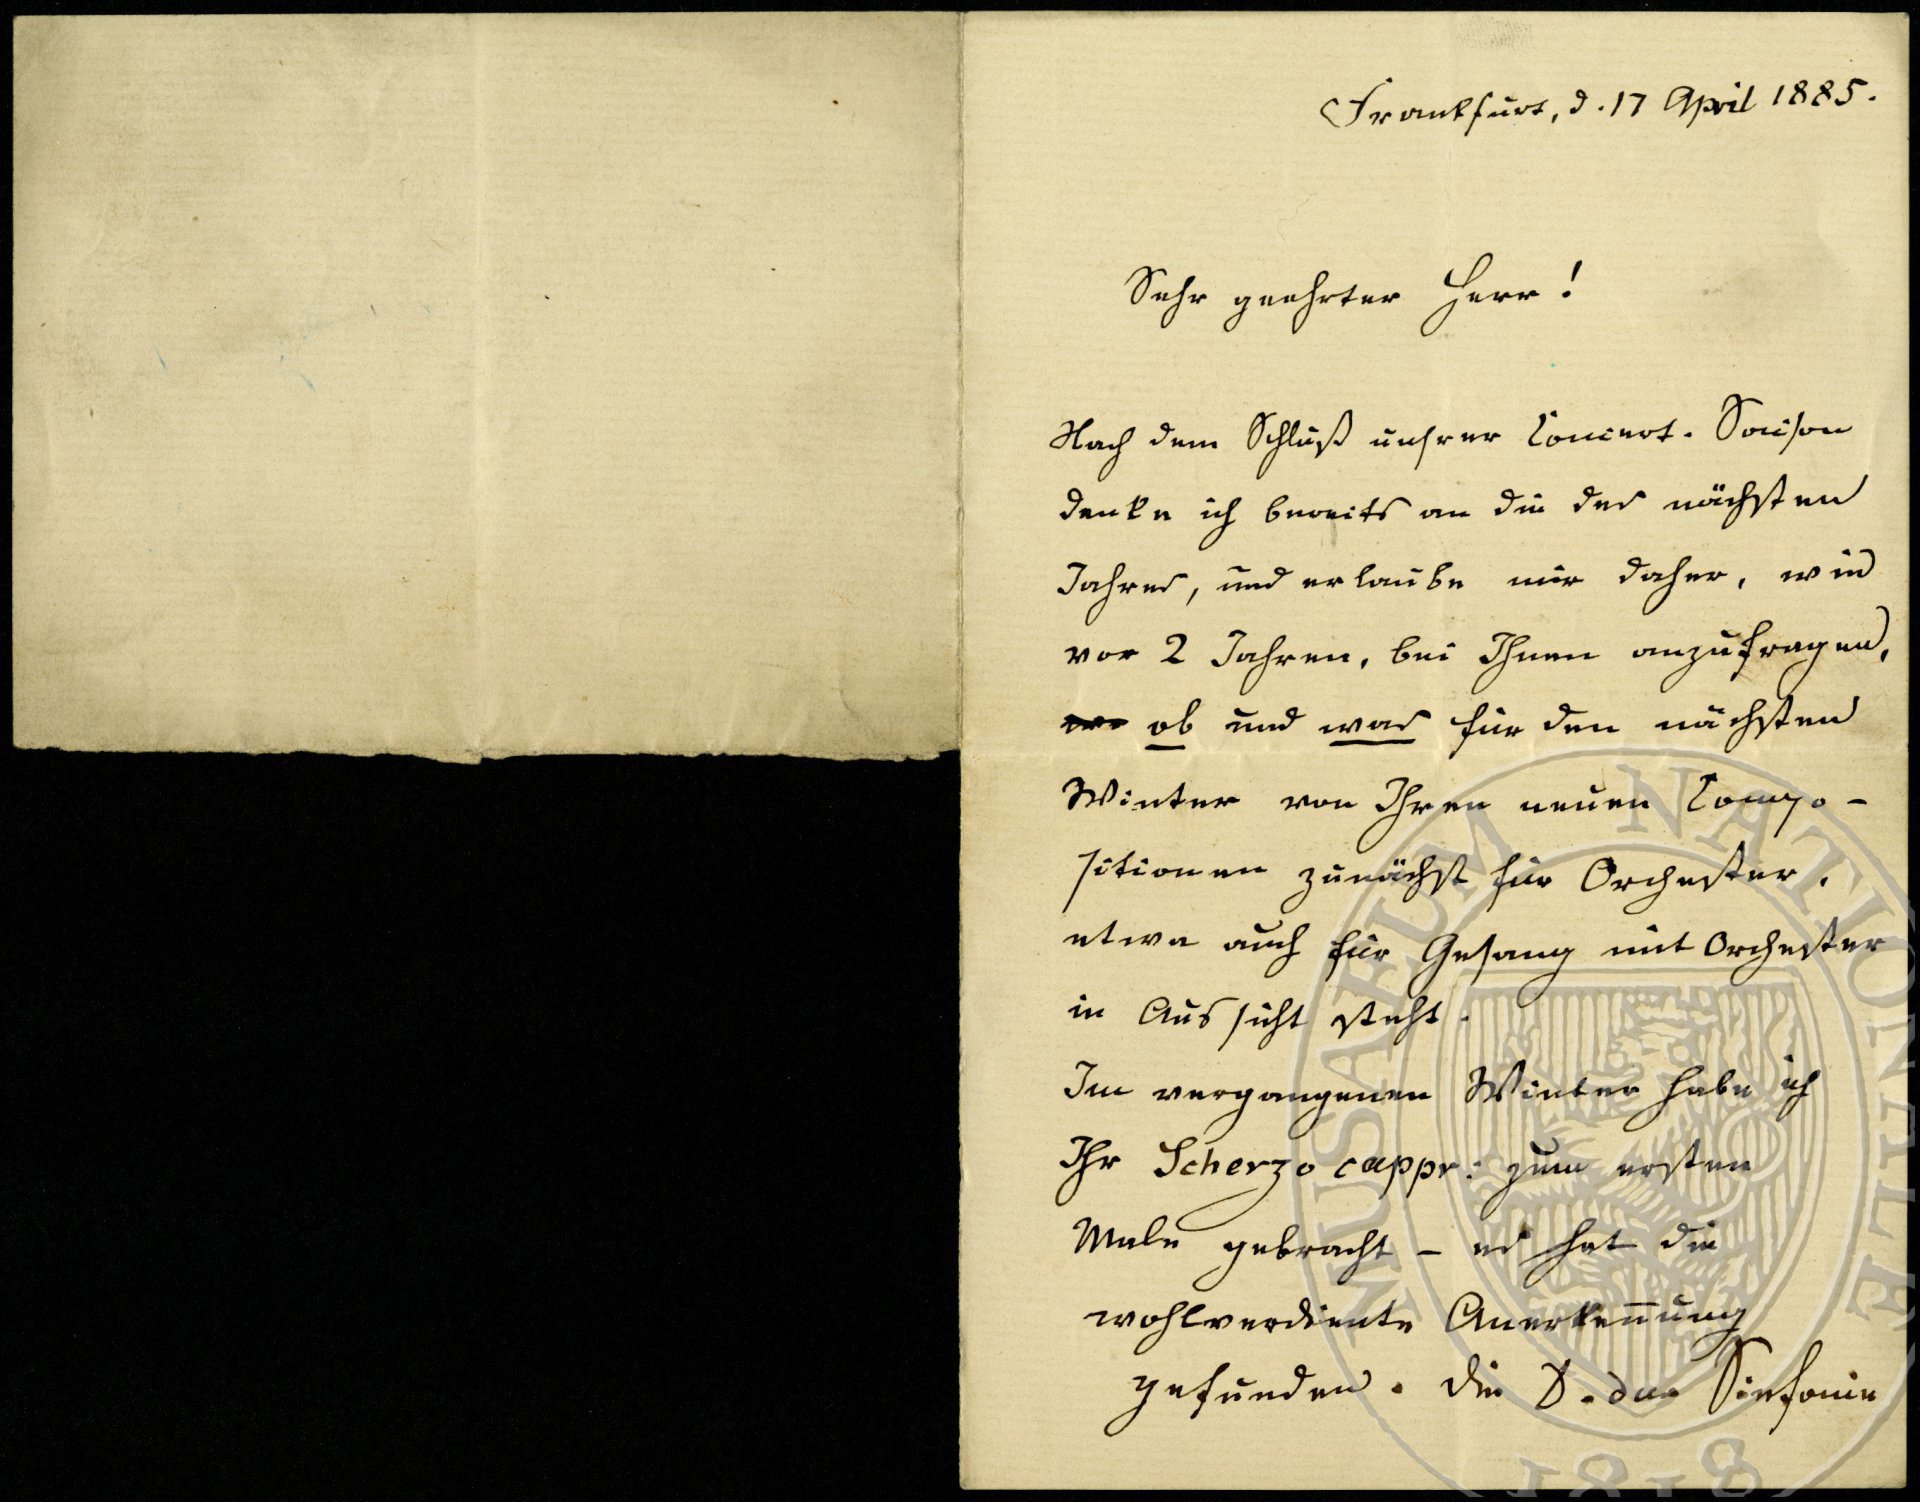 Frankfurt, d. 17 April 1885.
Sehr geehrter Herr!
Nach dem Schluß unsrer Concert-Saison
denke ich bereits an die des nächsten
Jahres, und erlaube mir daher, wie
vor 2 Jahren, bei Ihnen anzufragen,
ob und was für den nächsten
Winter von Ihren neuen Compo-
sitionen zunächst für Orchester,
etwa auch für Gesang mit Orchester
in Aussicht steht.
Im vergangenen Winter habe ich
Ihr Scherzo cappr: zum ersten
Male gebracht – es hat die
wohlverdiente Anerkennung
gefunden. Die D-dur Sinfonie
MUSAEUM NATIONALE
1818